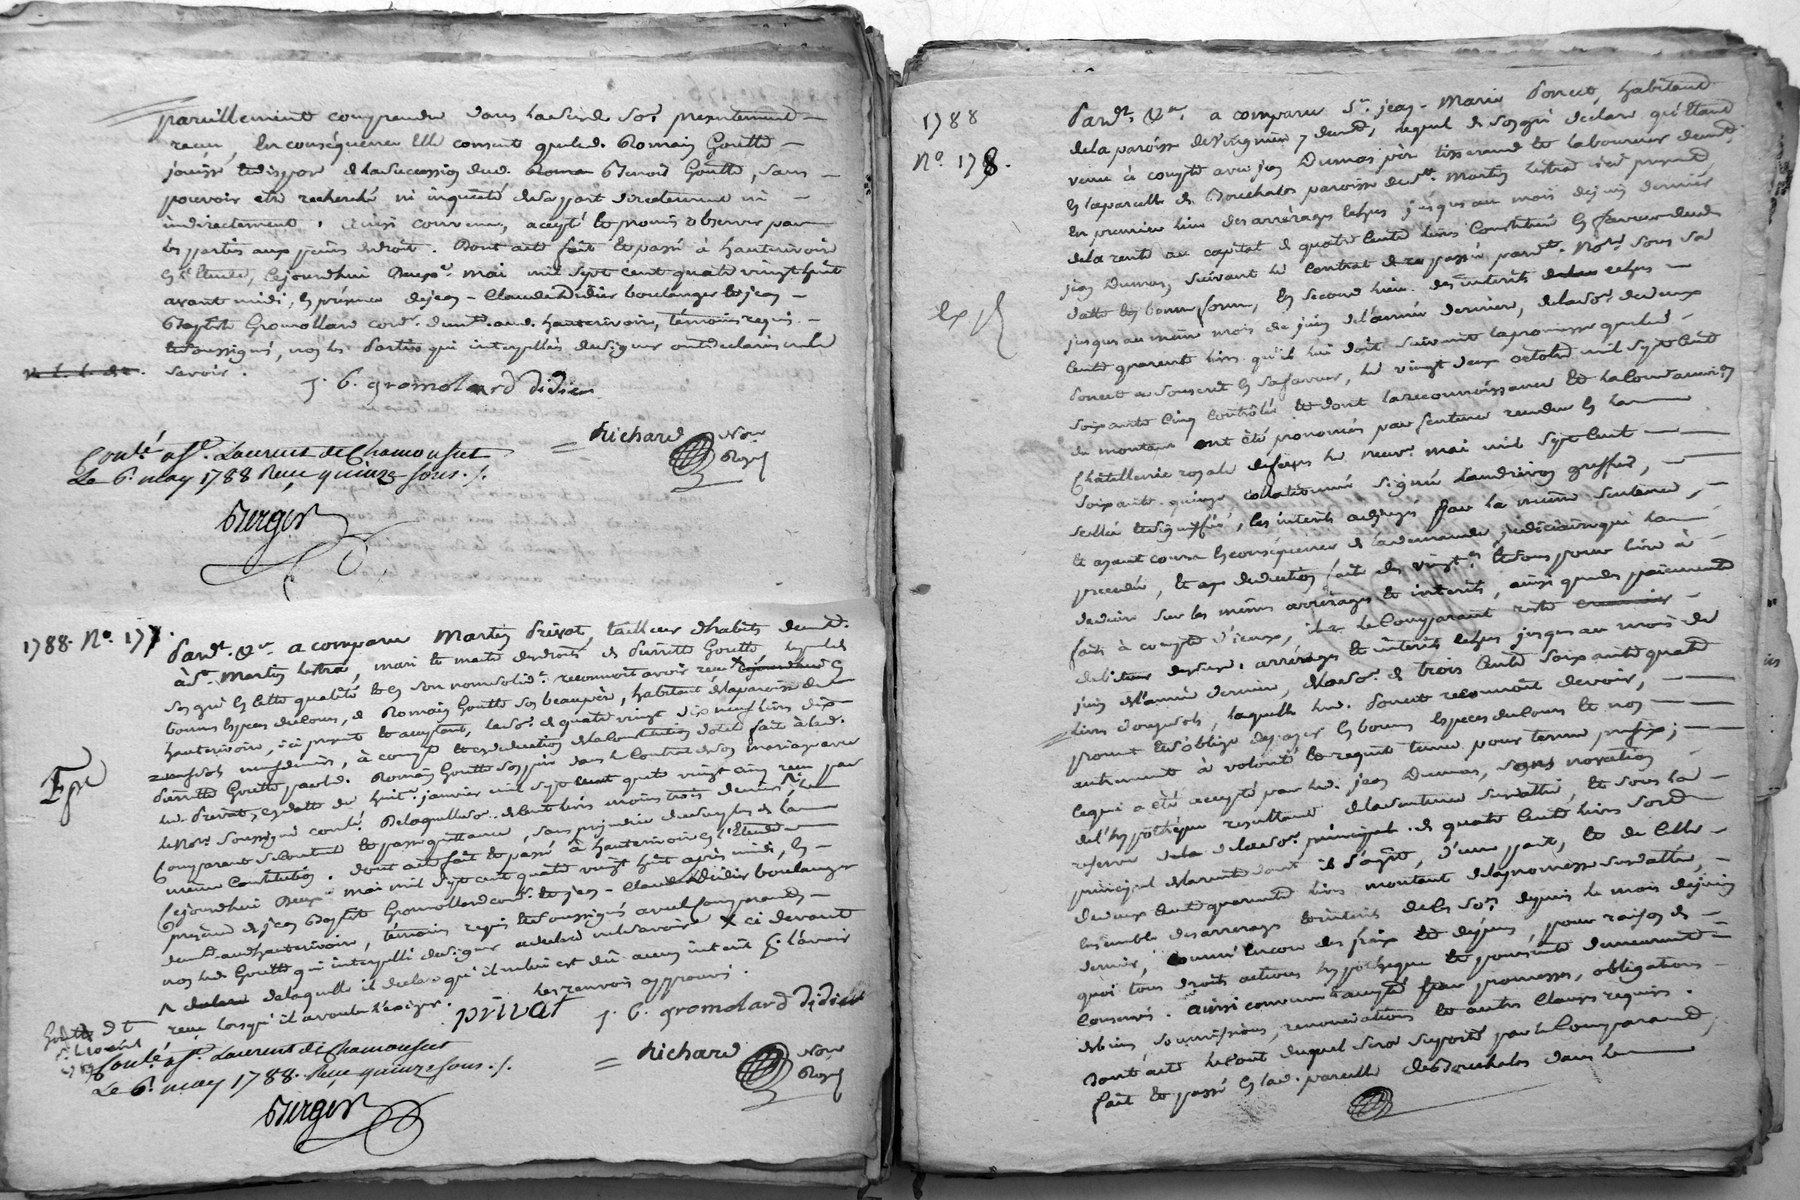 pareillement comprendre dans la susde. so.e presentement
recu, En conséquence Elle consent que led. Romain Goutte
jouisse et dispose de la succession dud. Benoit Goutte, sans
pouvoir etre recherché ni inquieté de sa part directement ni
indirectement, ainsi convenu, accepté et promis observer par
les parties aux peines de droit. Dont acte fait et passé à hauterivoire
En l'Etude, Cejourd'hui Deuxe. mai mil sept cent quatre vingt huit
avant midi, En présence de jean-Claude Didier boulanger et jean-
Baptiste Gromollard cordr. demt. aud. hauterivoire, témoins requis
et soussignés, non les Parties qui interpellées de signer ont declaré ne le
savoir.
J. B. gromolard didier
= Richard Nore
Royal
Conlé. a St. Laurent de Chamousset
Le 6. may 1788 Reçu quinze sous ./.
Berger
1788. No. 177.
Pardt. &a. a comparu Martin Privat, tailleur d'habits demt.
à St. Martin Lestra, mari et maitre des droits de Pierrette Goutte, lequel de
son gré En cette qualité et En son nom solidre. reconnoit avoir recu En
bonnes Especes du cours, de Romain Goutte son beaupère, habitant de la paroisse de
hauterivoire, ici present et acceptant, la so.e de quatre vingt dix neuf livres dix-
neuf sols neuf deniers, à compte et en deduction de la Constitution dotale faite à lad.
Pierrette Goutte par led. Romain Goutte son père dans le Contrat de son mariage avec
led. Privat, En datte du huite. janvier mil sept cent quatre vingt cinq recu par
le Nore. soussigné conlé. De laquelle so.e de
Comparant se contente et passe quittance, sans prejudice du surplus de la
meme Constitution. dont acte fait et passé à hauterivoire En l'Etude
Cejourd'hui Deuxe. mai mil sept cent quatre vingt huit après midi, En
presence de jean Baptiste Gromollard cordr. et jean-Claude Didier boulanger
demt. aud. hauterivoire, témoins requis et soussignés avec le Comparant,
non led. Goutte qui interpellé de signer a declaré ne le savoir X ci devant
de laquelle il declare qu'il ne lui est dû aucun interêt p. l'avoir
recu lorsqu'il a voulu l'exiger. les renvois approuvés.
privat J. B. gromolard didier
= Richard Nore
Royal
Conlé. a St. Laurent de Chamousset
Le 6. may 1788. Reçu quinze sous ./.
Berger
1788
No. 178.
Pardt. &a. a comparu Sr. jean-Marie Poncet, habitant
de la paroisse de
venu à compte avec jean Dumas père tisserand et laboureur demt.
En la parcelle de Bouchalas paroisse de St. Martin Lestra ici present,
En premier lieu des arrérages echus jusques au mois de juin dernier
de la rente au capital de quatre cents livres Constituée En faveur dud.
jean Dumas, suivant le Contrat passé pardt. Nore. sous sa
datte En bonne forme, En second lieu des interets echus
jusques au même mois de juin de l'année derniere, de la so.e de deux
Cents quarente livres qu'il lui doit suivant la promesse que led.
Poncet a souscrit En sa faveur, le vingt deux octobre mil sept cent
soixante cinq contrôlée et dont la reconnoissance et la condamnation
du montant ont été prononcés par sentence rendue En la
Châtellenie royale de feurs le neuve. mai mil sept cent
soixante quinze collationnée signée greffier,
scellée et signifiée, les interets adjugés par la même sentence,
et ayant couru En conséquence de la demande judiciaire qui l'a
precedée, et après deduction faite des vingte.s et sous pour livre à
deduire sur les mêmes arrérages et interets, ainsi que des paiements
faits à compte d'iceux, led. Comparant reste
debiteur desdits arrérages et interets echus jusques au mois de
juin de l'année derniere, de la so.e de trois Cents soixante quatre
livres onze sols, laquelle led. Poncet reconnoit devoir,
promet et s'oblige de payer En bonnes Especes du cours et non
autrement à volonté et requête tenue pour terme prefix;
Ce qui a été accepté par led. jean Dumas, sans novation
de l'hypothèque resultant de la sentence susdattée, et sous la
reserve de la so.e principale de quatre Cents livres sort
principal de la rente dont il s'agit, d'une part, et de celle
de deux Cents quarente livres montant de la promesse susdattée,
Ensemble des arrerages et interets de ces so.es depuis le mois de juin
dernier, comme Encore des frais et depens, pour raison de
quoi tous droits actions hypotheque et poursuite demeurent
Conservés. Ainsi convenu accepté par promesses, obligations
de biens, soumissions, renonciations et autres Clauses requises.
Dont acte le cout duquel sera suporté par le Comparant,
fait et passé En lad. parcelle de Bouchalas dans la